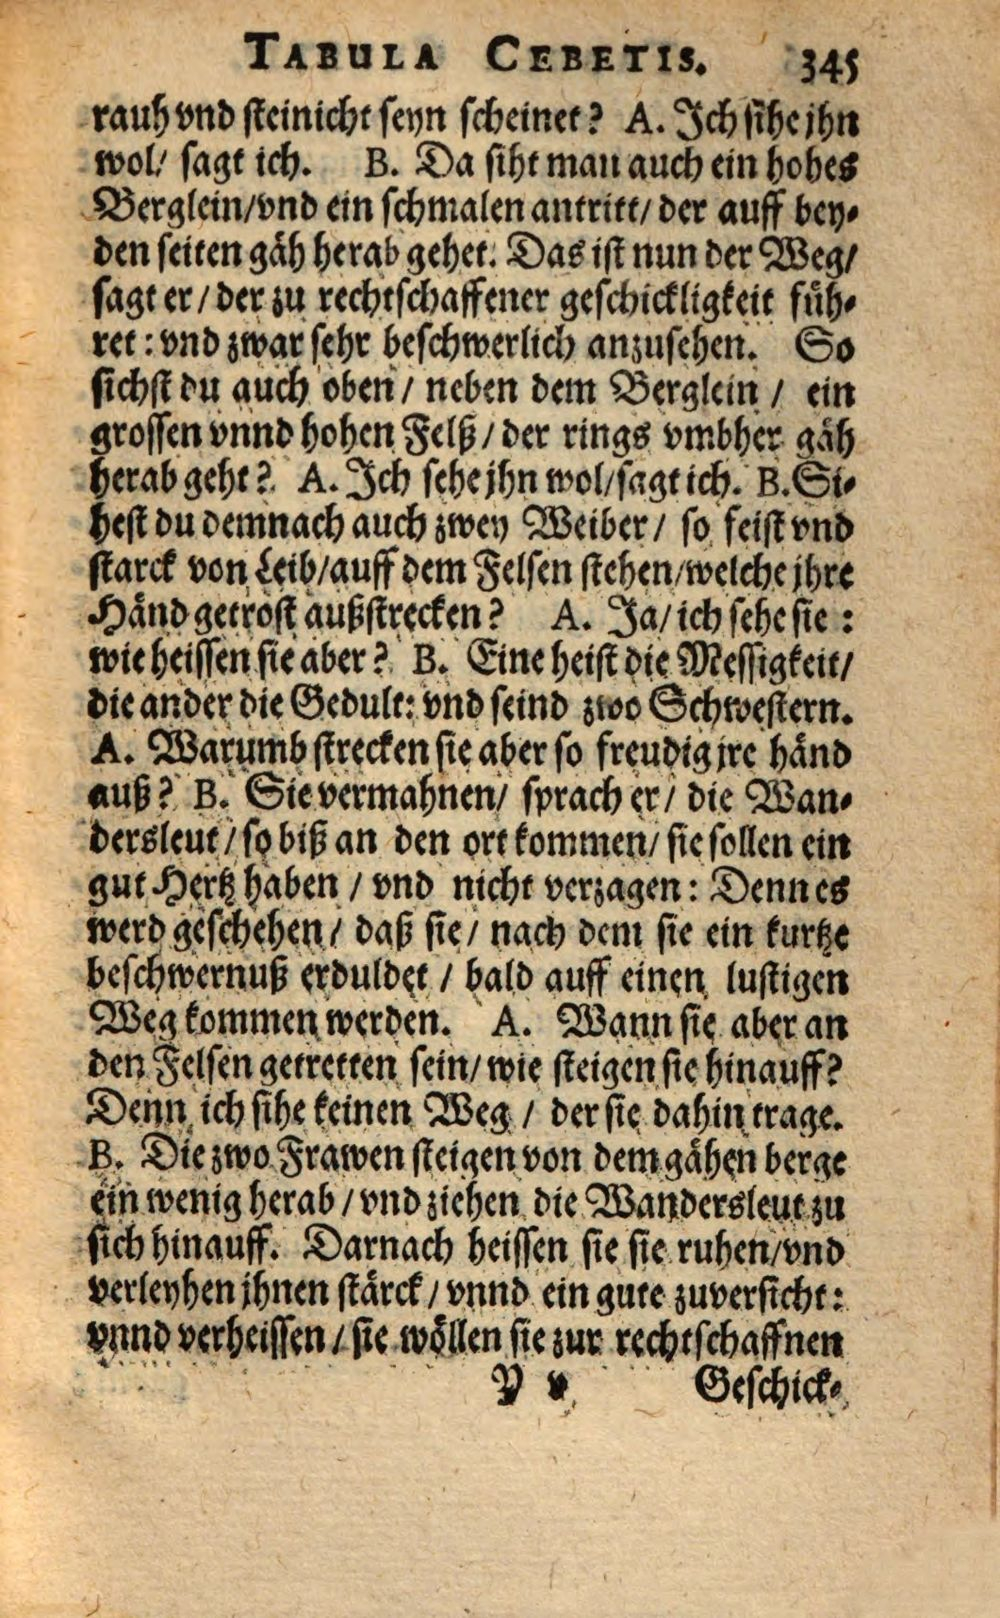 TABULA CEBETIS. 345
rauh vnd steinicht seyn scheinet? A. Ich sihe jhn
wol/ sagt ich. B. Da siht man auch ein hohes
Berglein/vnd ein schmalen antritt/ der auff bey-
den seiten gäh herab gehet. Das ist nun der Weg/
sagt er / der zu rechtschaffener geschickligkeit füh-
ret: vnd zwar sehr beschwerlich anzusehen. So
sichst du auch oben / neben dem Berglein / ein
grossen vnnd hohen Felß / der rings vmbher gäh
herab geht? A. Ich sehe jhn wol/sagt ich. B. Si-
hest du demnach auch zwey Weiber / so feist vnd
starck von Leib/auff dem Felsen stehen/welche jhre
Händ getrost außstrecken? A. Ja/ ich sehe sie:
wie heissen sie aber? B. Eine heist die Messigkeit/
die ander die Gedult: vnd seind zwo Schwestern.
A. Warumb strecken sie aber so freudig jre händ
auß? B. Sie vermahnen/ sprach er / die Wan-
dersleut / so biß an den ort kommen/ sie sollen ein
gut Hertz haben / vnd nicht verzagen: Denn es
werd geschehen / daß sie / nach dem sie ein kurtze
beschwernuß erduldet / bald auff einen lustigen
Weg kommen werden. A. Wann sie aber an
den Felsen getretten sein/ wie steigen sie hinauff?
Denn ich sihe keinen Weg / der sie dahin trage.
B. Die zwo Frawen steigen von dem gähen berge
ein wenig herab / vnd ziehen die Wandersleut zu
sich hinauff. Darnach heissen sie sie ruhen/vnd
verleyhen jhnen stärck / vnnd ein gute zuversicht:
vnnd verheissen / sie wöllen sie zur rechtschaffnen
Y v Geschick-